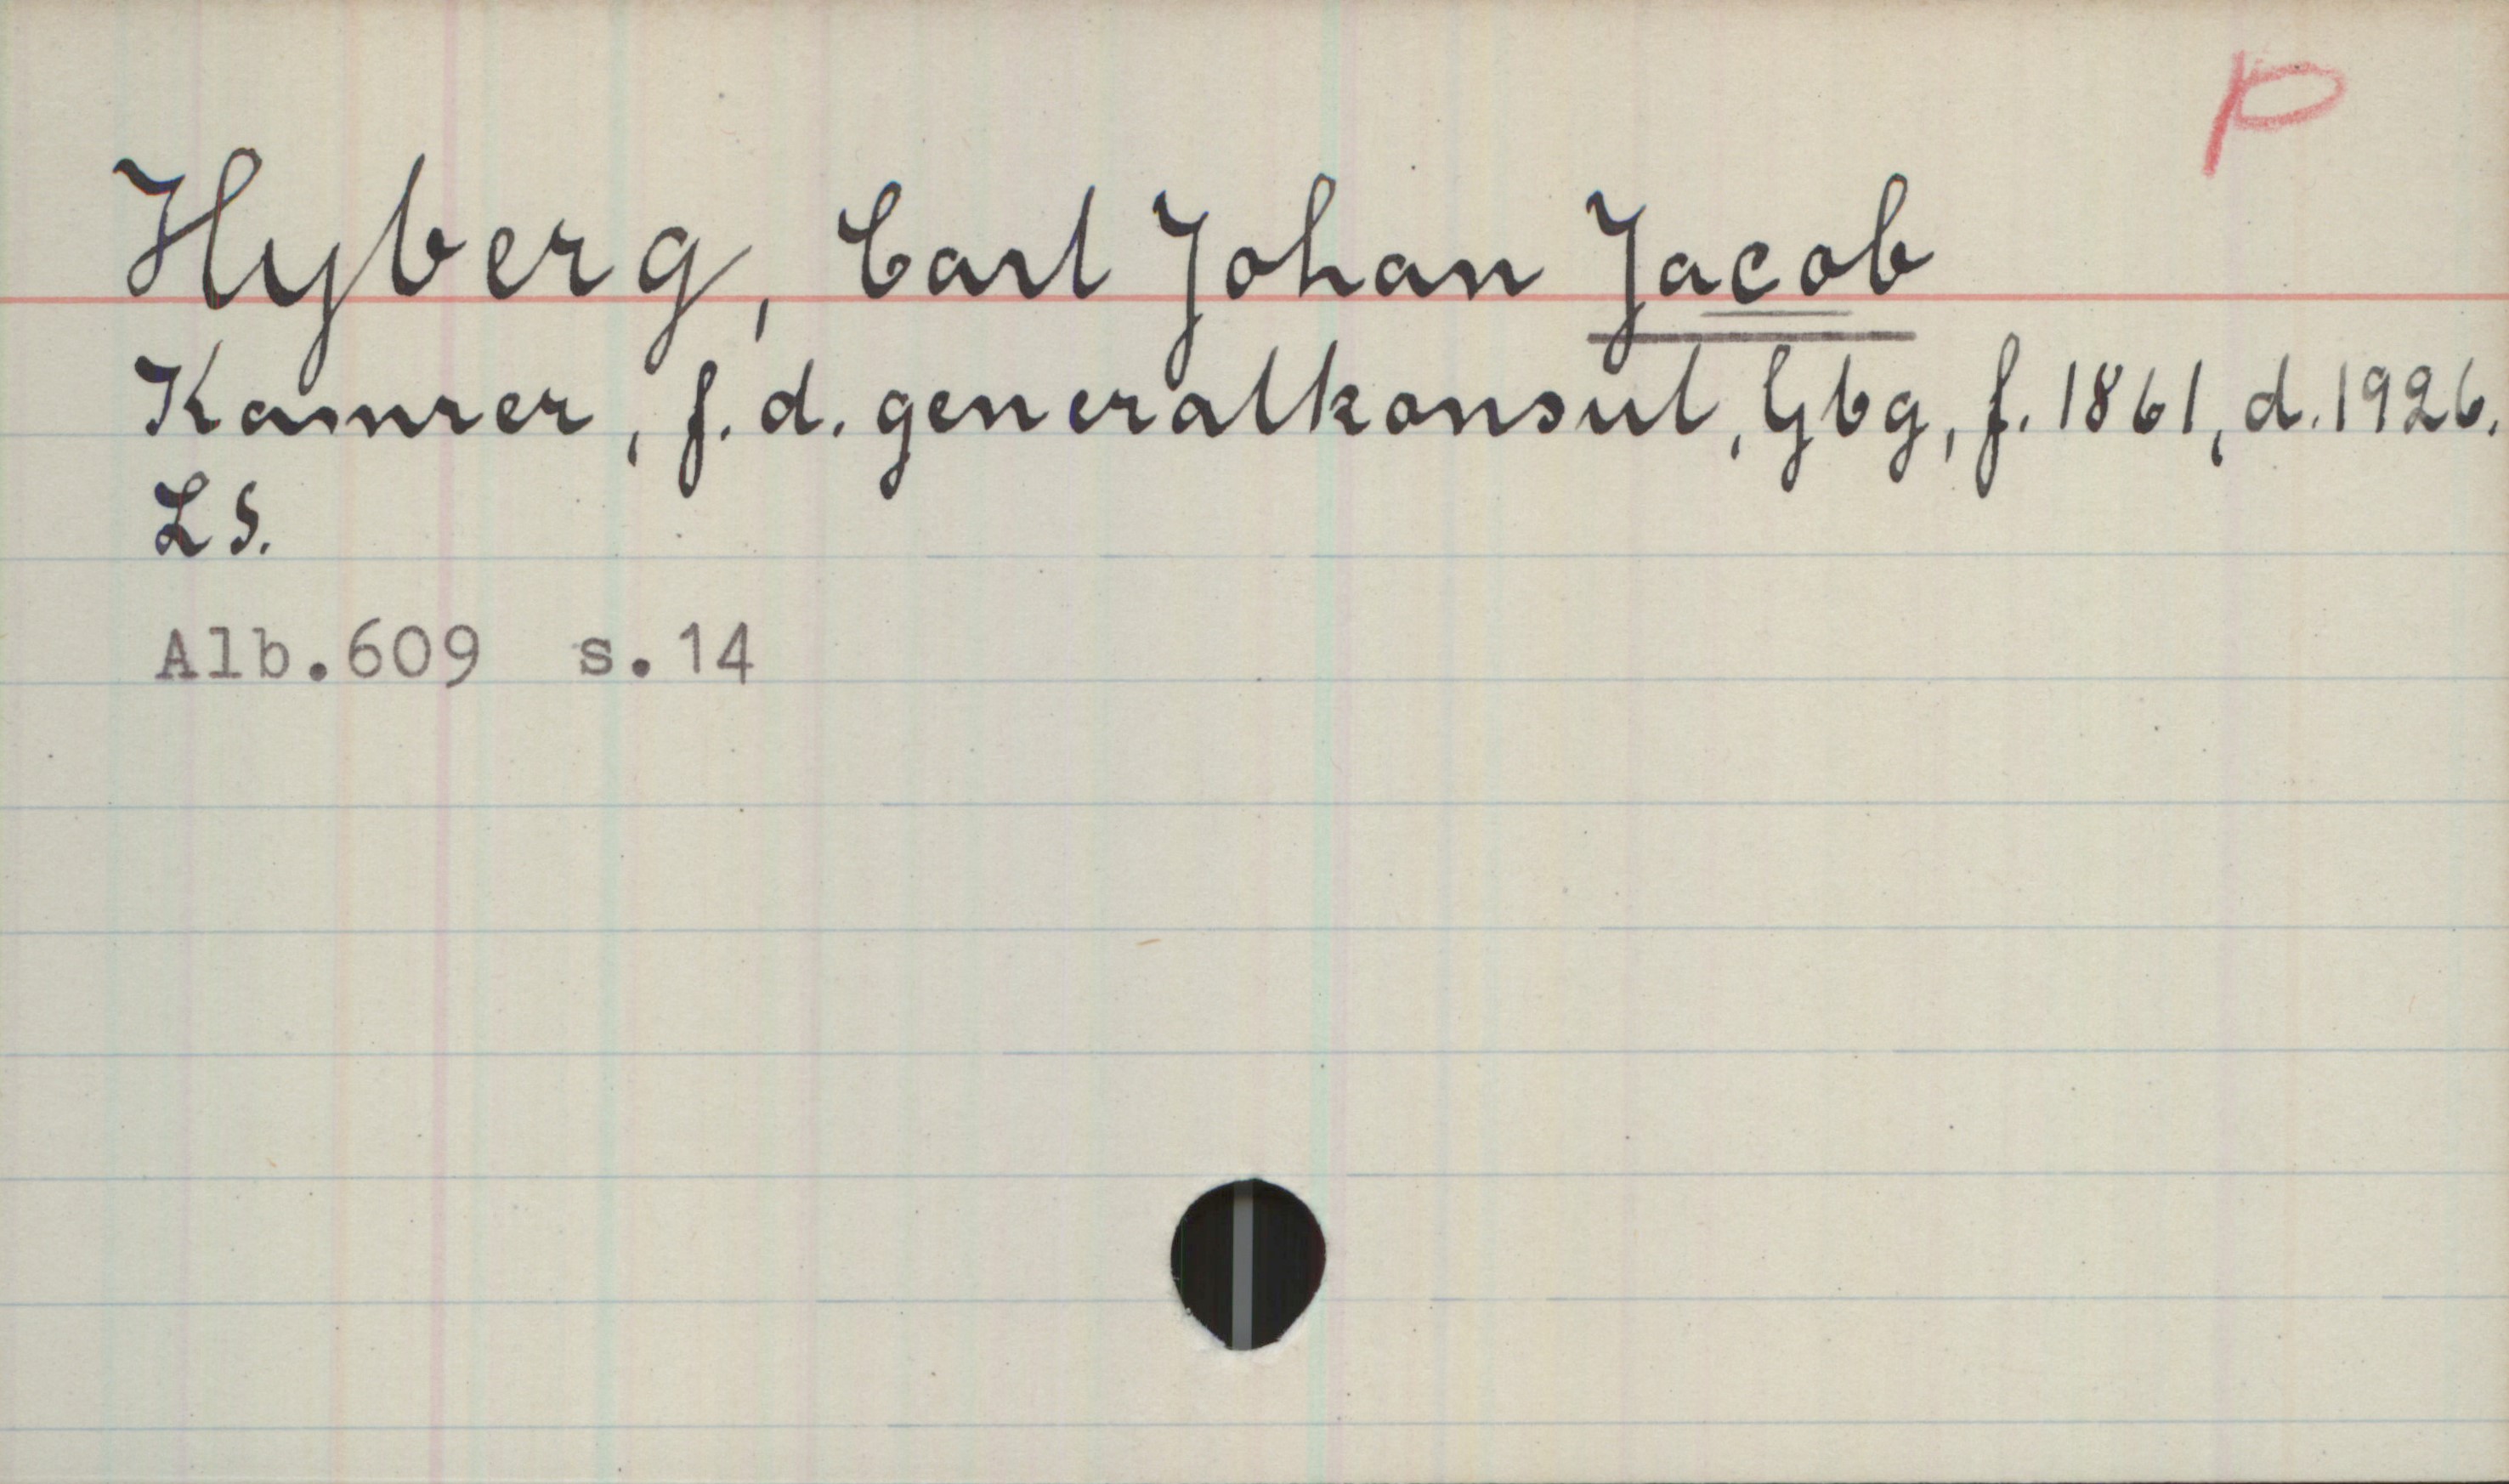 p
Hyberg, Carl Johan Jacob
Kamrer, f.d. generalkonsul, Gbg, f. 1861, d. 1926.
LS.
Alb.609 s.14